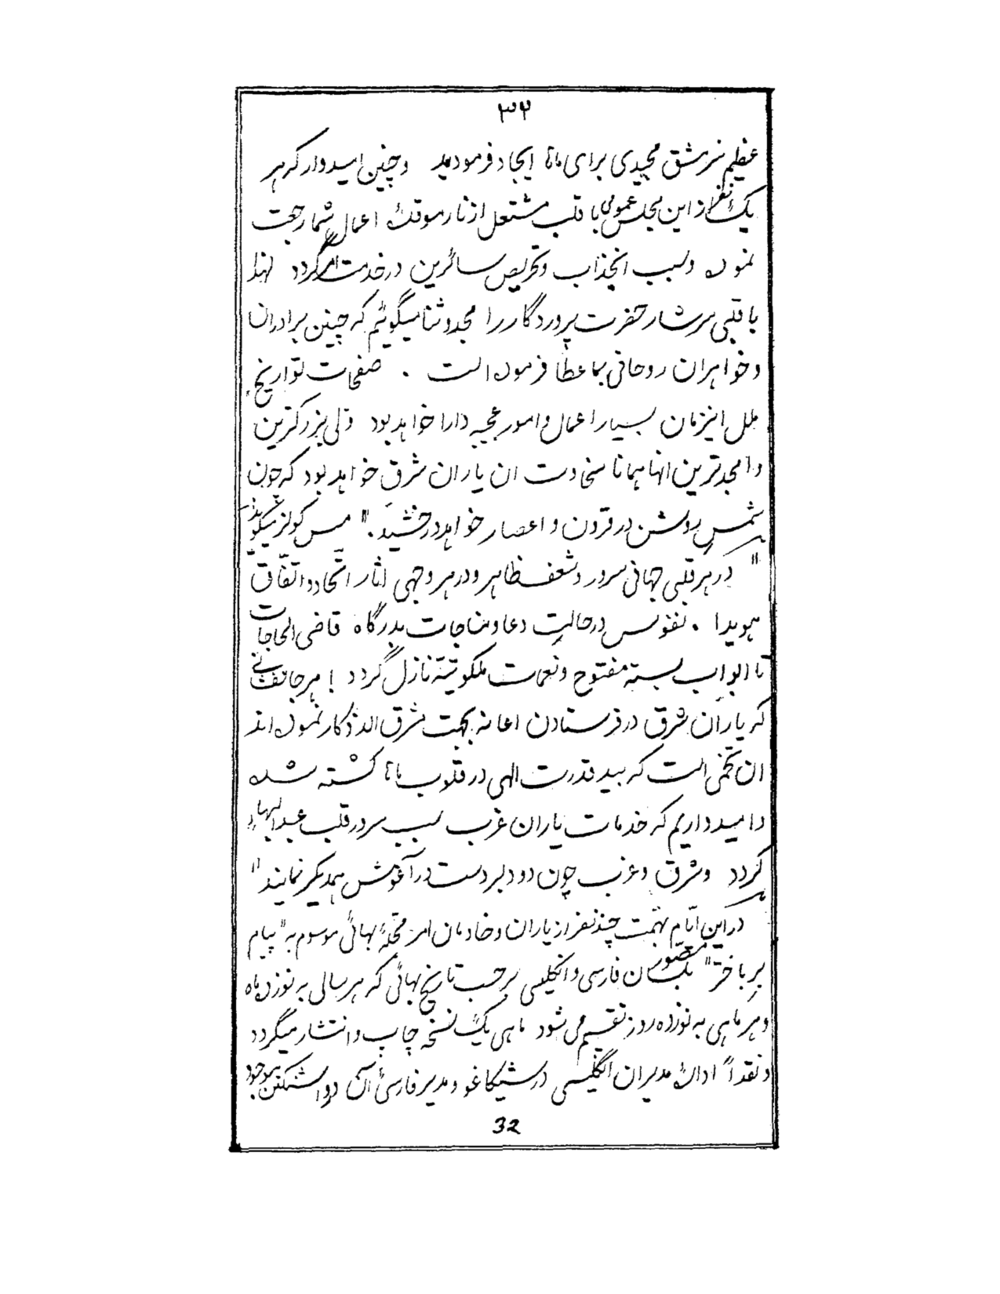 ۳۲
عظیم سرمشق مجیدی برای ماها ایجاد فرمودید و چنین امیدوارم که هر
یک نفر از این مجلس عمومی با قلب مشتعل از نار موقدهٔ اعمال شما رجعت
نموده و سبب انجذاب و تحریص سائرین در خدمت امر گردد لهذا
با قلبی سرشار حضرت پروردگار را مجد و ثنا میگوئیم که چنین برادران
و خواهران روحانی بما عطا فرموده است . صفحات تواریخ
ملل اینزمان بسیار اعمال و امور عجیبه دارا خواهد بود ولی بزرگترین
و امجدترین انها همانا سخاوت ان یاران شرق خواهد بود که چون
شمس روشن در قرون و اعصار خواهد درخشید . " مس کولز میگوید
" در هر قلبی جهانی سرور و شعف ظاهر و در هر وجهی اثار اتحاد و اتفاق
هویدا . نفوس در حالت دعا و مناجات بدرگاه قاضی الحاجات
تا ابواب بسته مفتوح و نعمات ملکوتیّه نازل گردد ! هر جانفشانی
که یاران شرق در فرستادن اعانه بجهت مشرق الاذکار نموده اند
ان تخمی است که بید قدرت الهی در قلوب ماها کشته شده
و امیدواریم که خدمات یاران غرب سبب سرور قلب عبدالبهاء
گردد و شرق و غرب چون دو دلبر دست در آغوش همدیگر نمایند "
در این ایّام بهمّت چند نفر از یاران و خادمان امر مجلّهٔ بهائی موسوم به " پیام
بر باختر " مصور بلسان فارسی و انگلیسی بر حسب تاریخ بهائی که هر سالی به نوزده ماه
و هر ماهی به نوزده روز تقسیم می شود ماهی یک نسخه چاپ و انتشار میگردد
و نقداً ادارهٔ مدیران انگلیسی در شیکاغو و مدیر فارسی آن در واشنگتن موجود
32